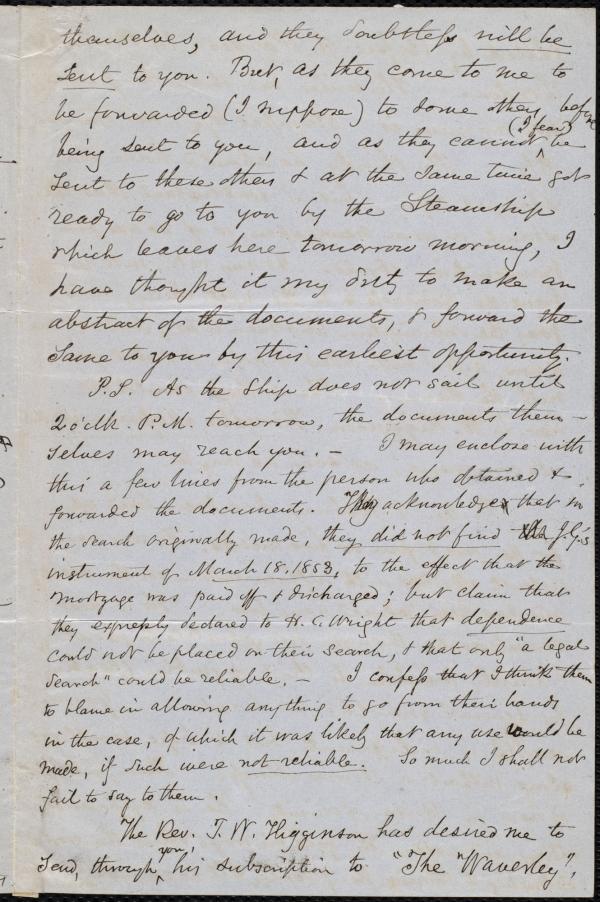 themselves, and they doubtless will be
sent to you. But, as they come to me to
be forwarded (I suppose) to some others before
being sent to you, and as they cannot (I fear) be
sent to these others & at the same time get
ready to go to you by the Steamship
which leaves here tomorrow morning, I
have thought it my duty to make an
abstract of the documents, & forward the
same to you by this earliest opportunity.
P.S. As the ship does not sail until
2 o'clk. P.M. tomorrow, the documents them-
selves may reach you. — I may enclose with
this a few lines from the person who obtained &
forwarded the documents. They acknowledge that in
the search originally made, they did not find J.G.'s
instrument of March 18, 1853, to the effect that the
mortgage was paid off & discharged; but claim that
they expressly declared to H. C. Wright that dependence
could not be placed on their search, & that only "a legal
search" could be reliable. — I confess that I think them
to blame in allowing anything to go from their hands
in the case, of which it was likely that any use would be
made, if such were not reliable. So much I shall not
fail to say to them.
The Rev. T. W. Higginson has desired me to
send, through you, his subscription to "The "Waverley",